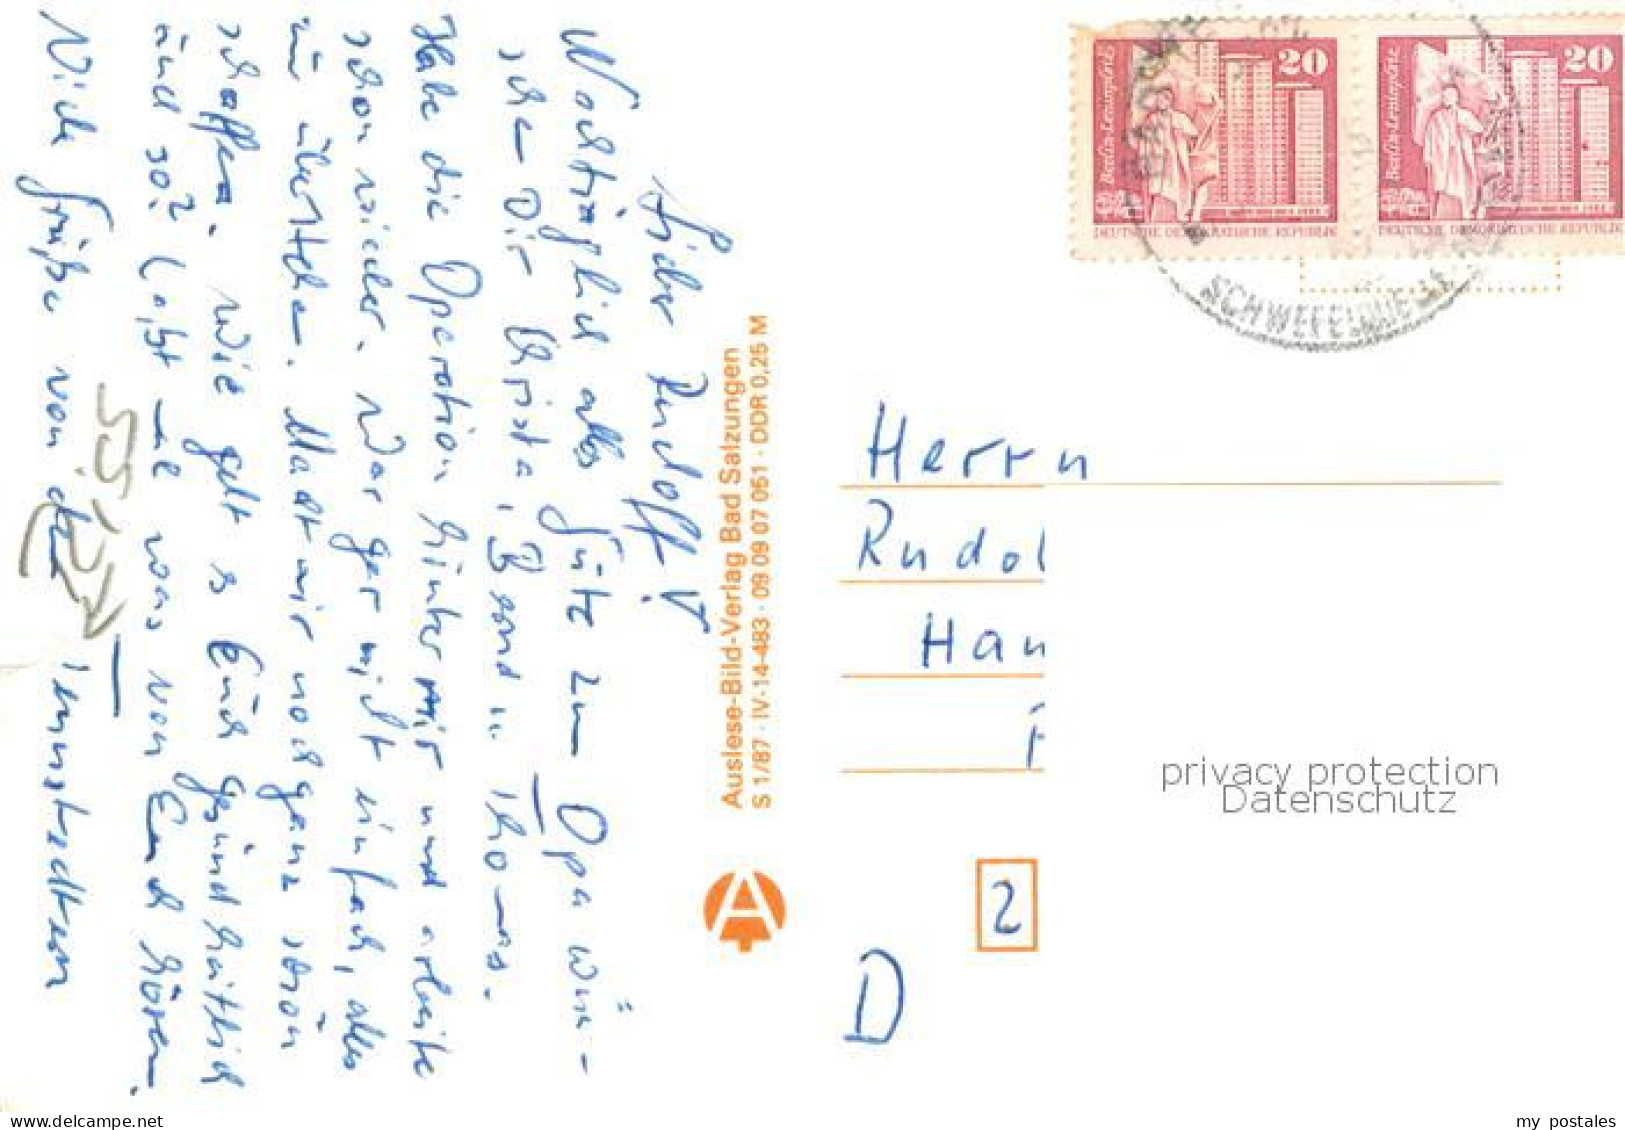 Lieber Rudolf!
Nachträglich alles Gute zum Opa wün-
schen Dir Christa, Bernd u. Thomas.
Habe die Operation hinter mir und arbeite
schon wieder. War gar nicht einfach, alles
zu überstehen. Macht mir noch ganz schön
schaffen. Wie geht es Euch gesundheitlich
und so? Laßt mal was von Euch hören.
Viele Grüße von den Tennstedtern
Auslese-Bild-Verlag Bad Salzungen
S 1/87 · IV-14-483 · 09 09 07 051 · DDR 0,25 M
20
Berlin-Leninplatz
DDR
DEUTSCHE DEMOKRATISCHE REPUBLIK
20
Berlin-Leninplatz
DDR
DEUTSCHE DEMOKRATISCHE REPUBLIK
SCHWEFELQUELLE
Herrn
Rudol
Han
privacy protection
Datenschutz
2
D
delcampe.net
my_postales